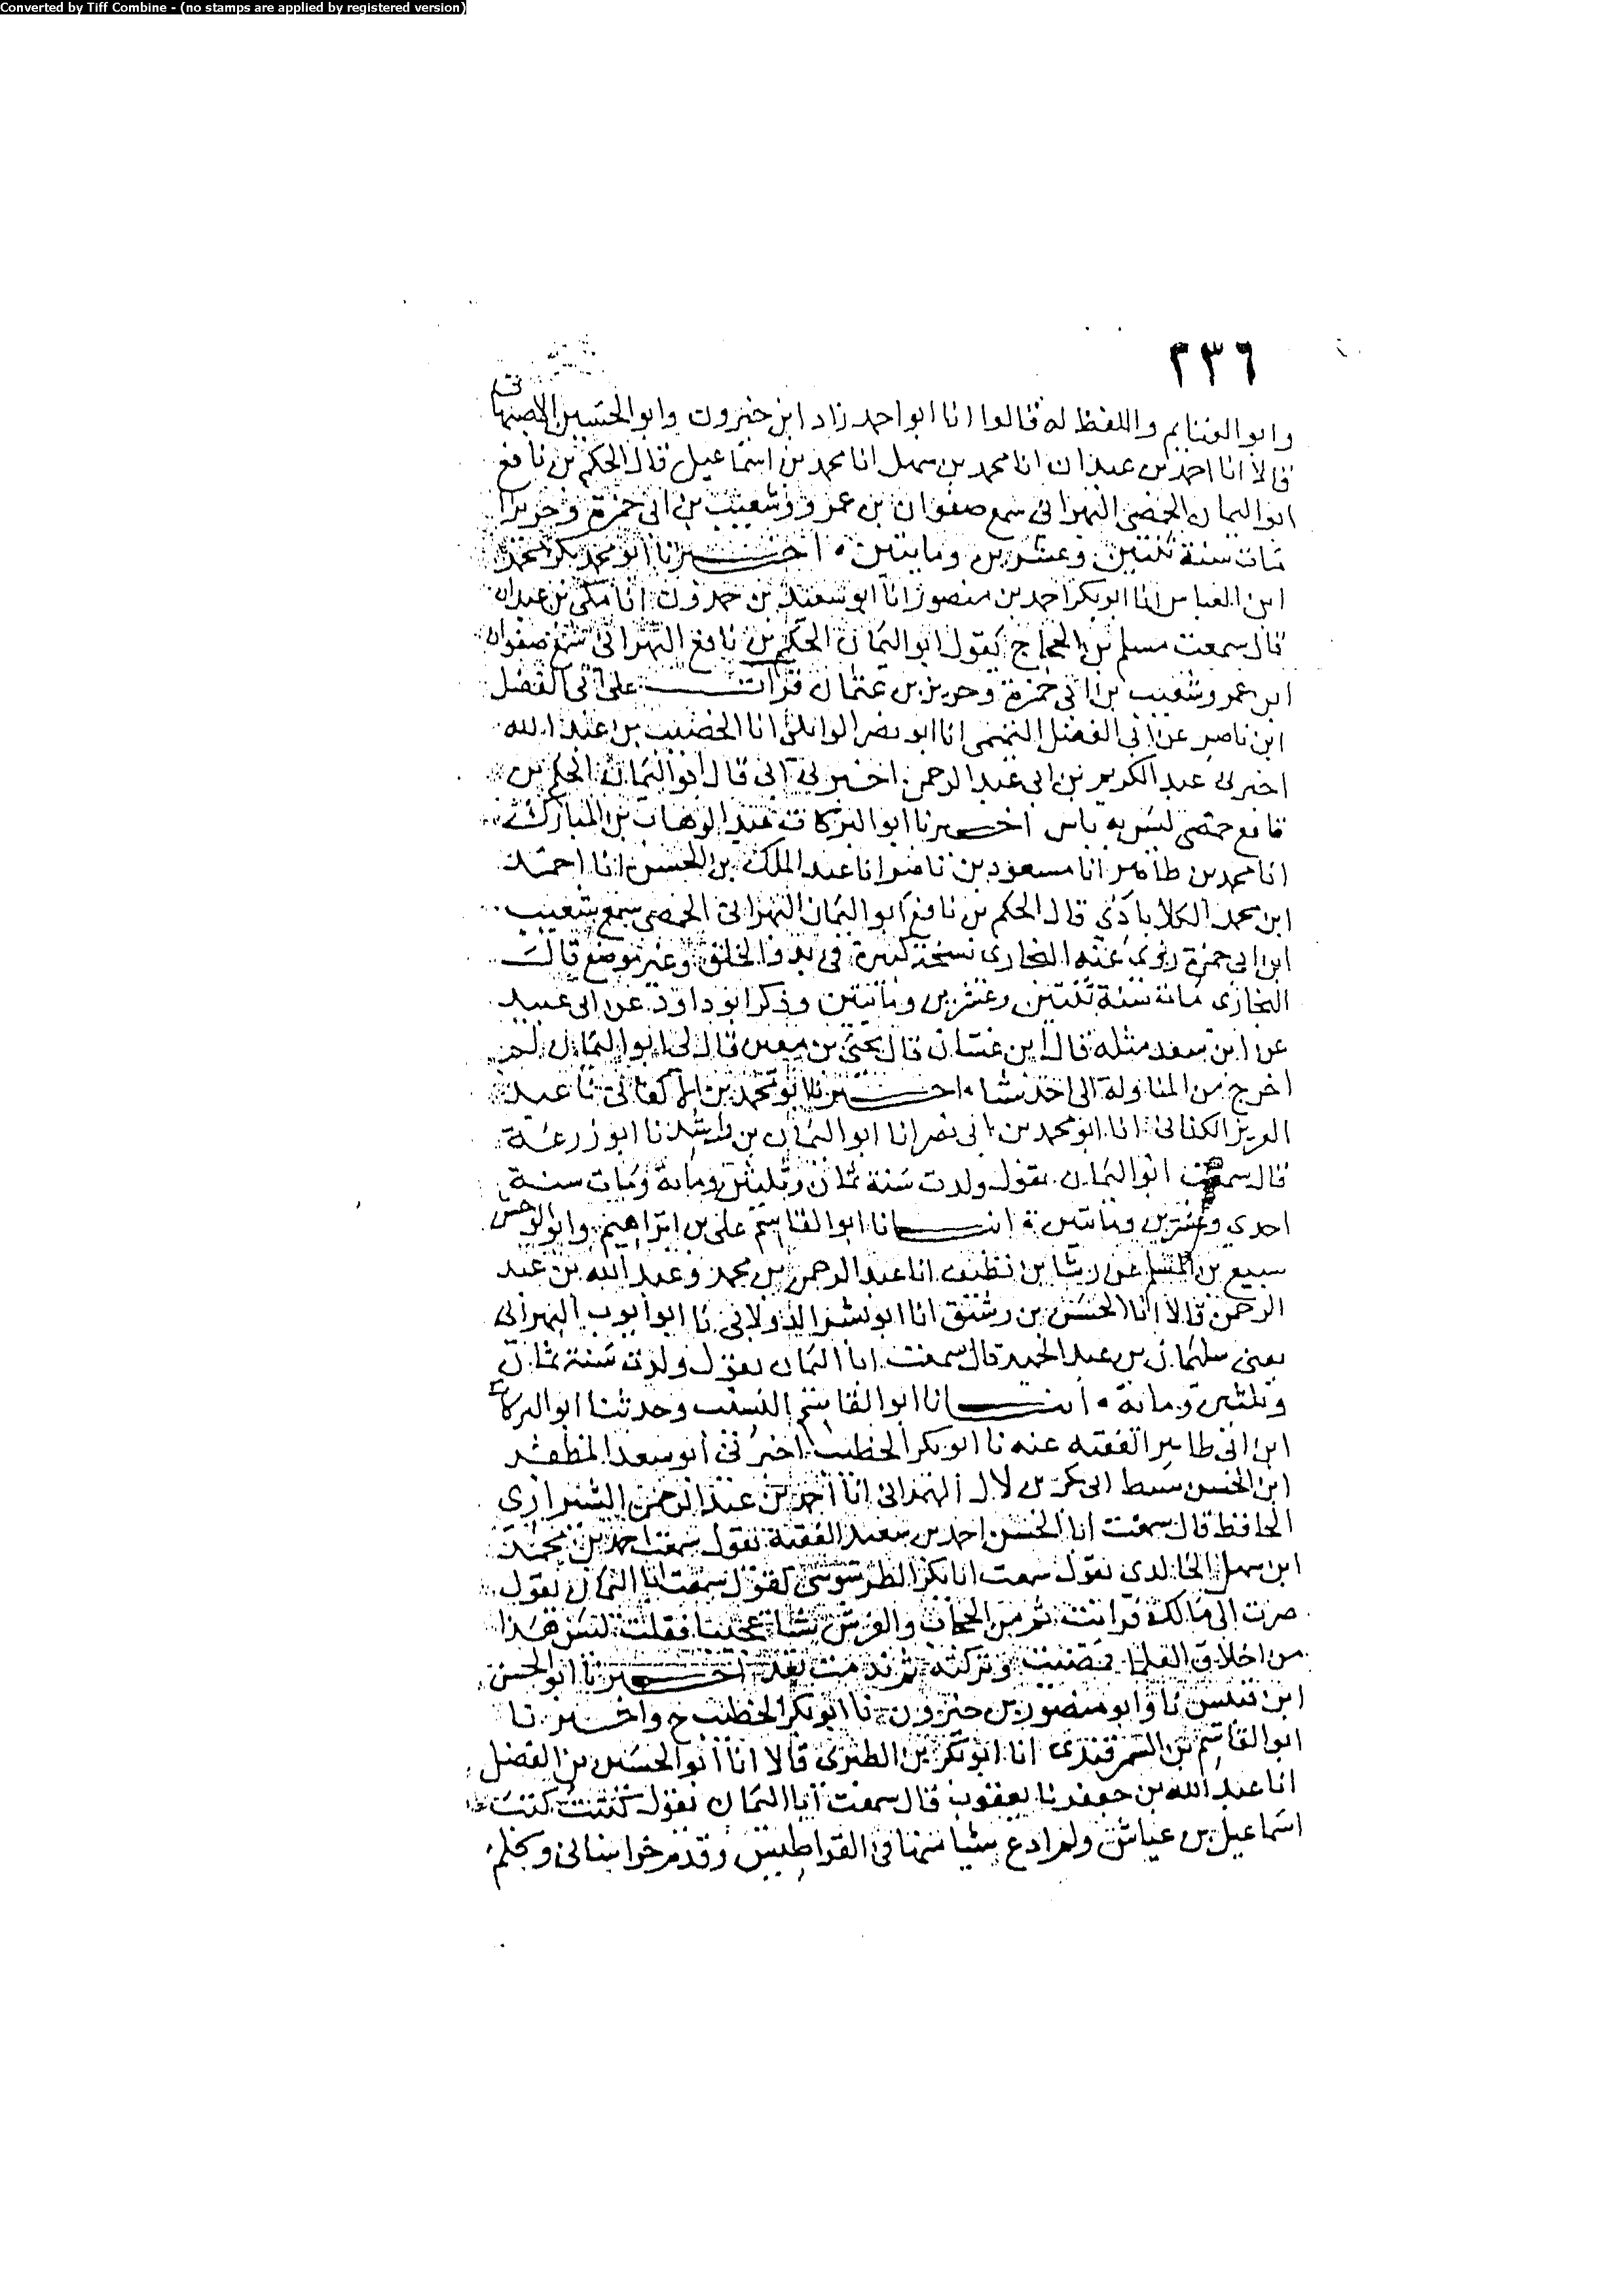 Converted by Tiff Combine - (no stamps are applied by registered version)
٢٣٦
وابو الغنايم واللفظ له قالوا انا ابو احمد زاد ابن خيرون وابو الحسين الاصبهاني
قالا انا احمد بن عبدان انا محمد بن سهل انا محمد بن اسماعيل قال الحكم بن نافع
ابو اليمان الحمصي البهراني سمع صفوان بن عمرو وشعيب بن ابي حمزة وحريزا
مات سنة ثنتين وعشرين ومايتين اخبرنا ابو محمد بكر محمد
ابن العباس انا ابو بكر احمد بن منصور انا ابو سعيد بن حمدون انا مكي بن عبدان
قال سمعت مسلم بن الحجاج يقول ابو اليمان الحكم بن نافع البهراني سمع صفوان
ابن عمرو وشعيب بن ابي حمزة وحريز بن عثمان قرات على ابي الفضل
ابن ناصر عن ابي الفضل التميمي انا ابو نصر الوائلي انا الخصيب بن عبد الله
اخبرني عبد الكريم بن ابي عبد الرحمن اخبرني ابي قال ابو اليمان الحكم بن
نافع حمصي ليس به باس اخبرنا ابو البركات عبد الوهاب بن المبارك
انا محمد بن طاهر انا مسعود بن ناصر انا عبد الملك بن الحسن انا احمد
ابن محمد الكلاباذي قال الحكم بن نافع ابو اليمان البهراني الحمصي سمع شعيب
ابن ابي حمزة روى عنه البخاري نسخة كبيرة في بدو الخلق وغير موضع قال
البخاري مات سنة ثنتين وعشرين ومايتين وذكر ابو داود عن ابي عبيد
عن ابن سعد مثله قال ابن غسان قال يحيى بن معين قال لي ابو اليمان لم
اخرج من المناولة الى احد شيا اخبرنا ابو محمد بن الاكفاني نا عبد
العزيز الكناني انا ابو محمد بن ابي نصر انا ابو اليمان بن راشد نا ابو زرعة
قال سمعت ابو اليمان يقول ولدت سنة ثمان وثلثين وماية ومات سنة
احدى وعشرين ومايتين انبانا ابو القاسم علي بن ابراهيم وابو الوحش
سبيع بن المسلم عن رشا بن نظيف انا عبد الرحمن بن محمد وعبد الله بن عبد
الرحمن قالا انا الحسن بن رشيق انا ابو بشر الدولابي نا ابو ايوب البهراني
يعني سليمان بن عبد الحميد قال سمعت ابا اليمان يقول ولدت سنة ثمان
وثلثين وماية انبانا ابو القاسم النسيب وحدثنا ابو البركات
ابن ابي طاهر الفقيه عنه نا ابو بكر الخطيب اخبرني ابو سعد المظفر
ابن الحسن سبط ابي بكر بن لال الهمداني انا احمد بن عبد الرحمن الشيرازي
الحافظ قال سمعت ابا الحسن احمد بن سعيد الفقيه يقول سمعت احمد بن محمد
ابن سهل الخالدي يقول سمعت ابا بكر الطرسوسي يقول سمعت ابا اليمان يقول
صرت الى مالك فرايت ثم من الحجاب والفرش شيا عجيبا فقلت ليس هذا
من اخلاق العلما فمضيت وتركته ثم ندمت بعد اخبرنا ابو الحسن
ابن قبيس نا وابو منصور بن خيرون نا ابو بكر الخطيب ح واخبرنا
ابو القاسم بن السمرقندي انا ابو بكر بن الطبري قالا انا ابو الحسين بن الفضل
انا عبد الله بن جعفر نا يعقوب قال سمعت ابا اليمان يقول كتبت كتب
اسماعيل بن عياش ولم ادع شيا منها في القراطيس وقدم خراساني وكلم